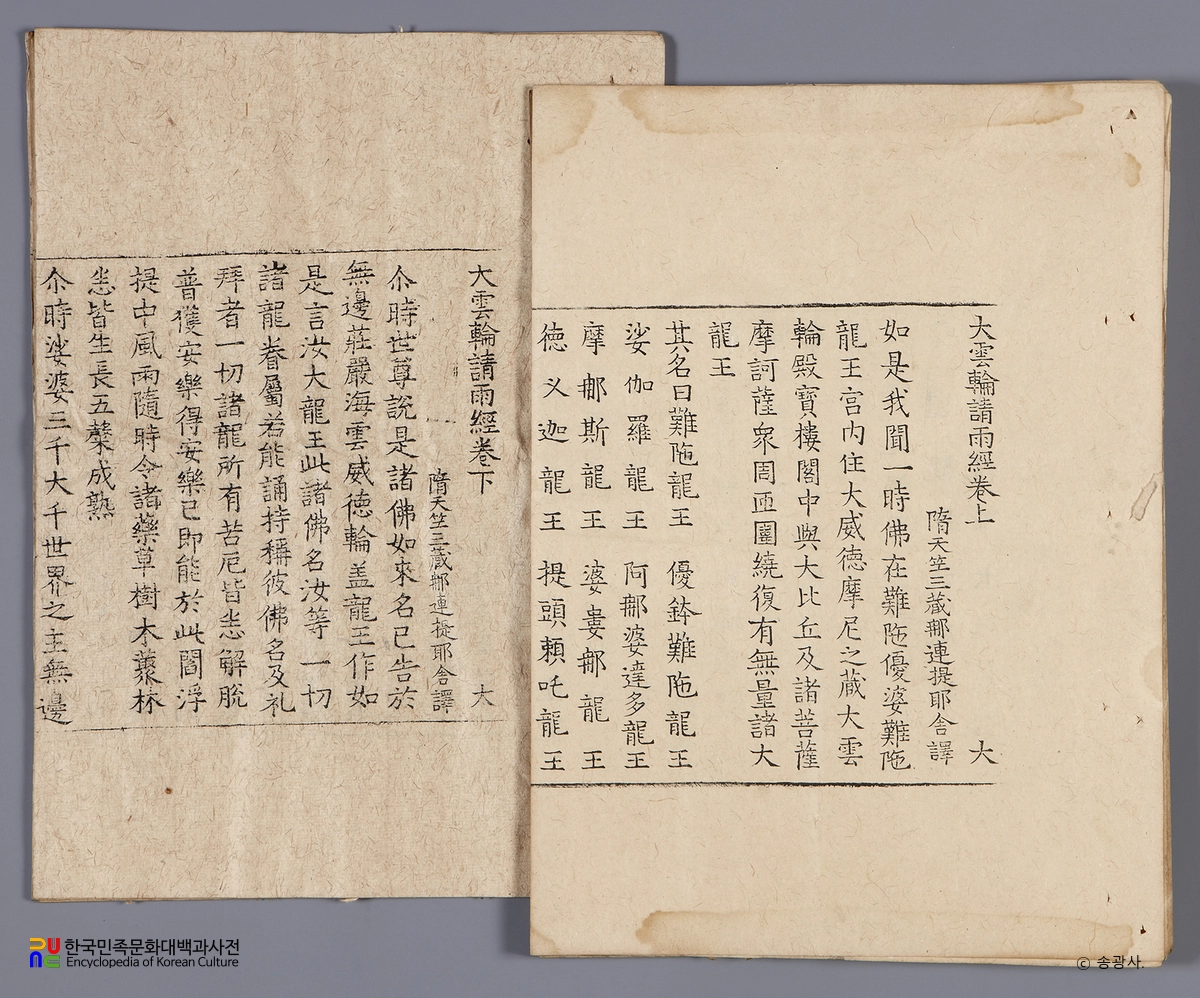 大雲輪請雨經卷上　大
隋天竺三蔵郍連提耶舎譯
如是我聞一時佛在難陁優婆難陁
龍王宫内住大威徳摩尼之蔵大雲
輪殿寳樓閣中與大比丘及諸菩薩
摩訶薩衆周匝圍繞復有無量諸大
龍王
其名曰難陁龍王　優鉢難陁龍王
娑伽羅龍王　阿郍婆達多龍王
摩郍斯龍王　婆婁郍龍王
徳义迦龍王　提頭頼吒龍王
大雲輪請雨經卷下　大
隋天竺三蔵郍連提耶舎譯
尒時世尊說是諸佛如來名已告於
無邊莊嚴海雲威徳輪盖龍王作如
是言汝大龍王此諸佛名汝等一切
諸龍眷屬若能誦持稱彼佛名及礼
拜者一切諸龍所有苦厄皆悉解脫
普獲安樂得安樂已即能於此閻浮
提中風雨隨時令諸藥草樹木蘩林
悉皆生長五糓成熟
尒時娑婆三千大千世界之主無邊
한국민족문화대백과사전
Encyclopedia of Korean Culture
© 송광사.